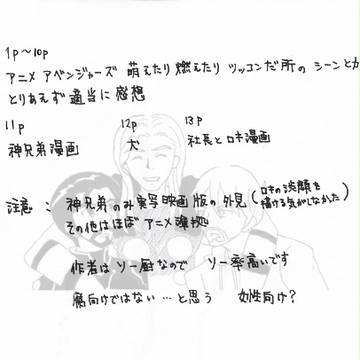 1p～10p
アニメ アベンジャーズ 萌えたり燃えたり ツッコンだ所の シーンとか
とりあえず適当に感想
11p
神兄弟漫画
12p
犬
13p
社長とロキ漫画
注意 : 神兄弟のみ実写映画版の外見 (ロキの淡顔を描ける気がしなかった)
その他はほぼアニメ準拠
作者はソー厨なので ソー率高いです
腐向けではない…と思う 女性向け?